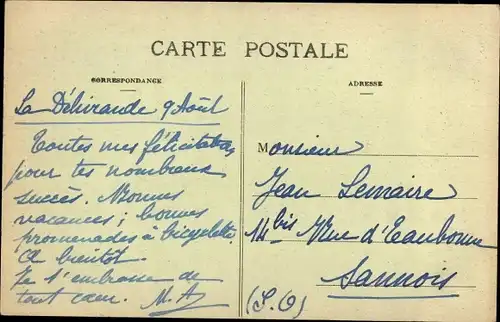 CARTE POSTALE
CORRESPONDANCE
La Délivrande 9 Août
Toutes mes félicitations
pour tes nombreux
succès. Bonnes
vacances ; bonnes
promenades à bicyclette.
A bientôt.
Je t'embrasse de
tout cœur. M.A
ADRESSE
Monsieur
Jean Lemaire
14 bis Rue d'Eaubonne
Sannois
(S.O)